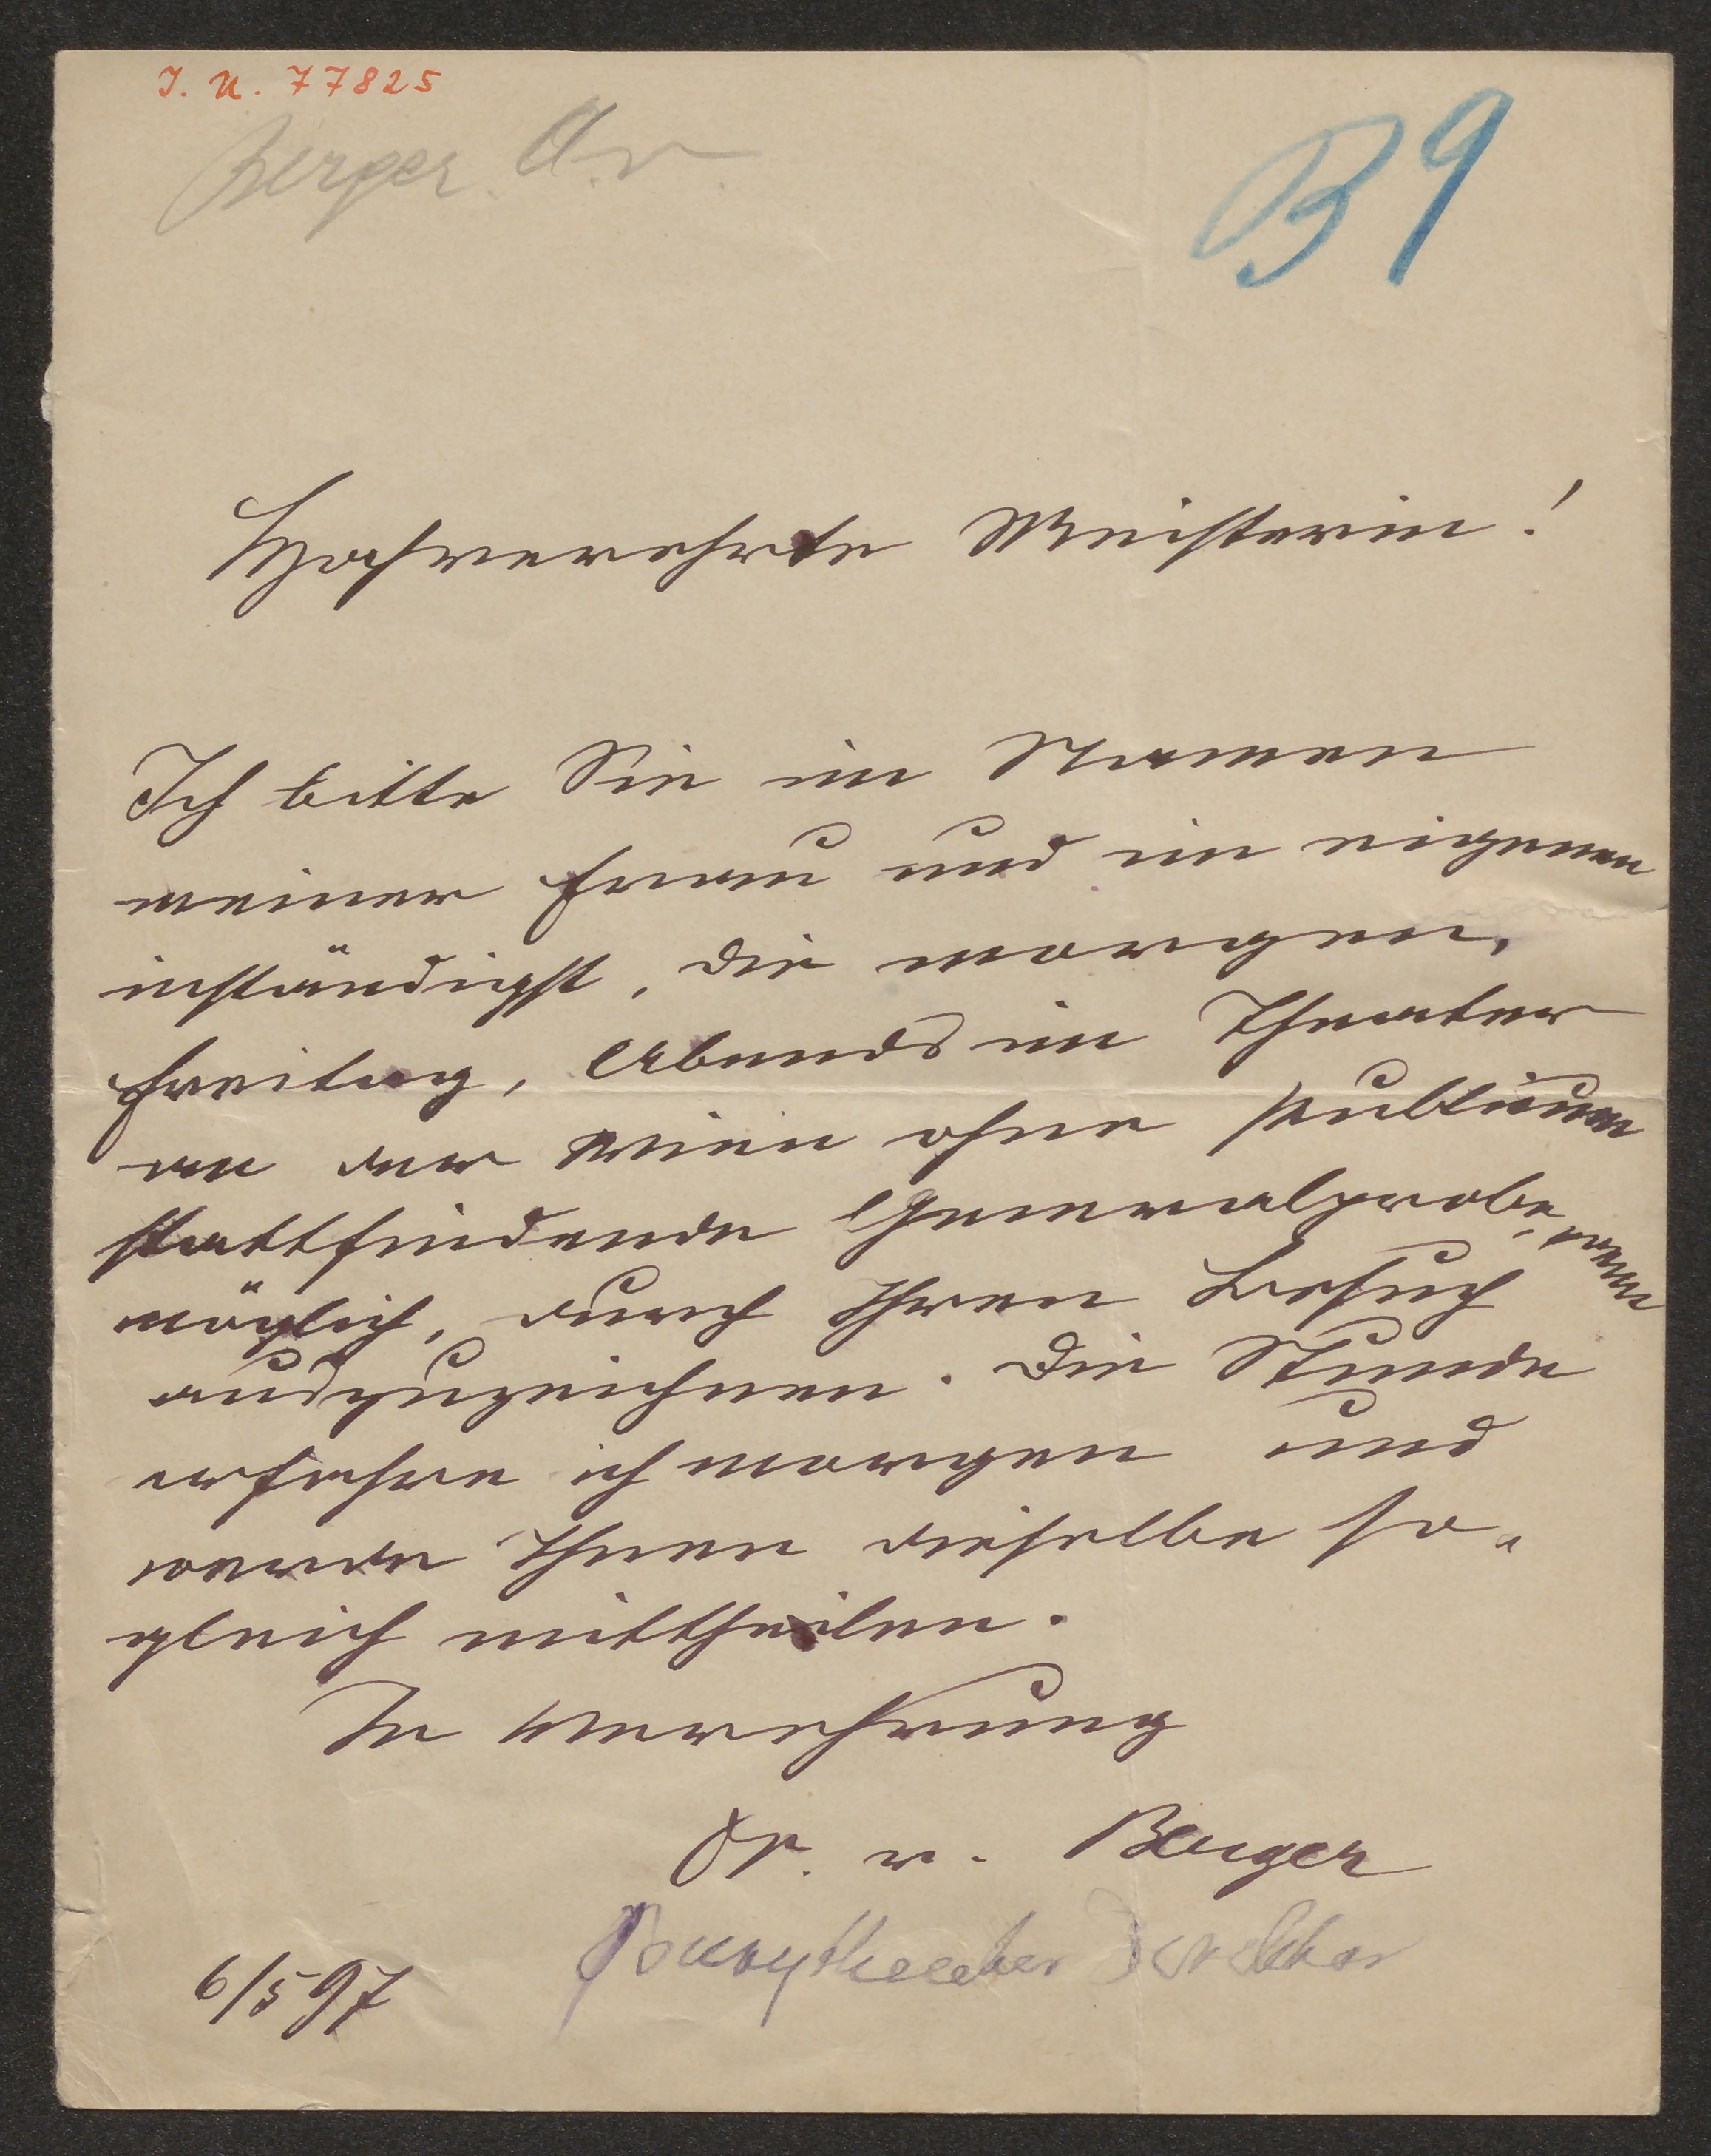 I. N. 77825
Berger. A. v.
B9
Hochverehrte Meisterin!
Ich bitte Sie im Namen
meiner Frau und im eigenen
inständigst, die morgen,
Freitag, Abends im Theater
an der Wien ohne Publicum
stattfindende Generalprobe, wenn
möglich, durch Ihren Besuch
auszuzeichnen. Die Stunde
erfahre ich morgen und
werde Ihnen dieselbe so-
gleich mittheilen.
In Verehrung
Dr. v. Berger
Burgtheater Direktor
6/5 97